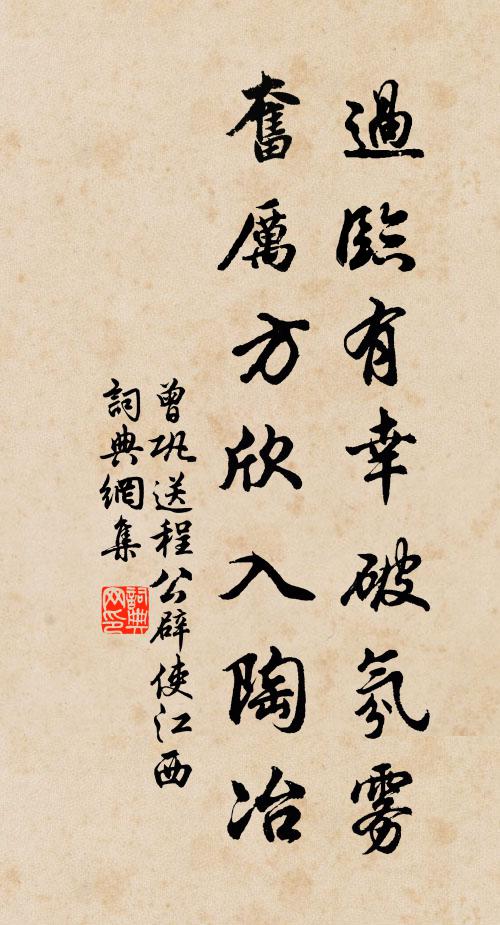 過臨有幸破氛霧
奮厲方欣入陶冶
曾巩送程公辟使江西
詞典網集
詞典网印